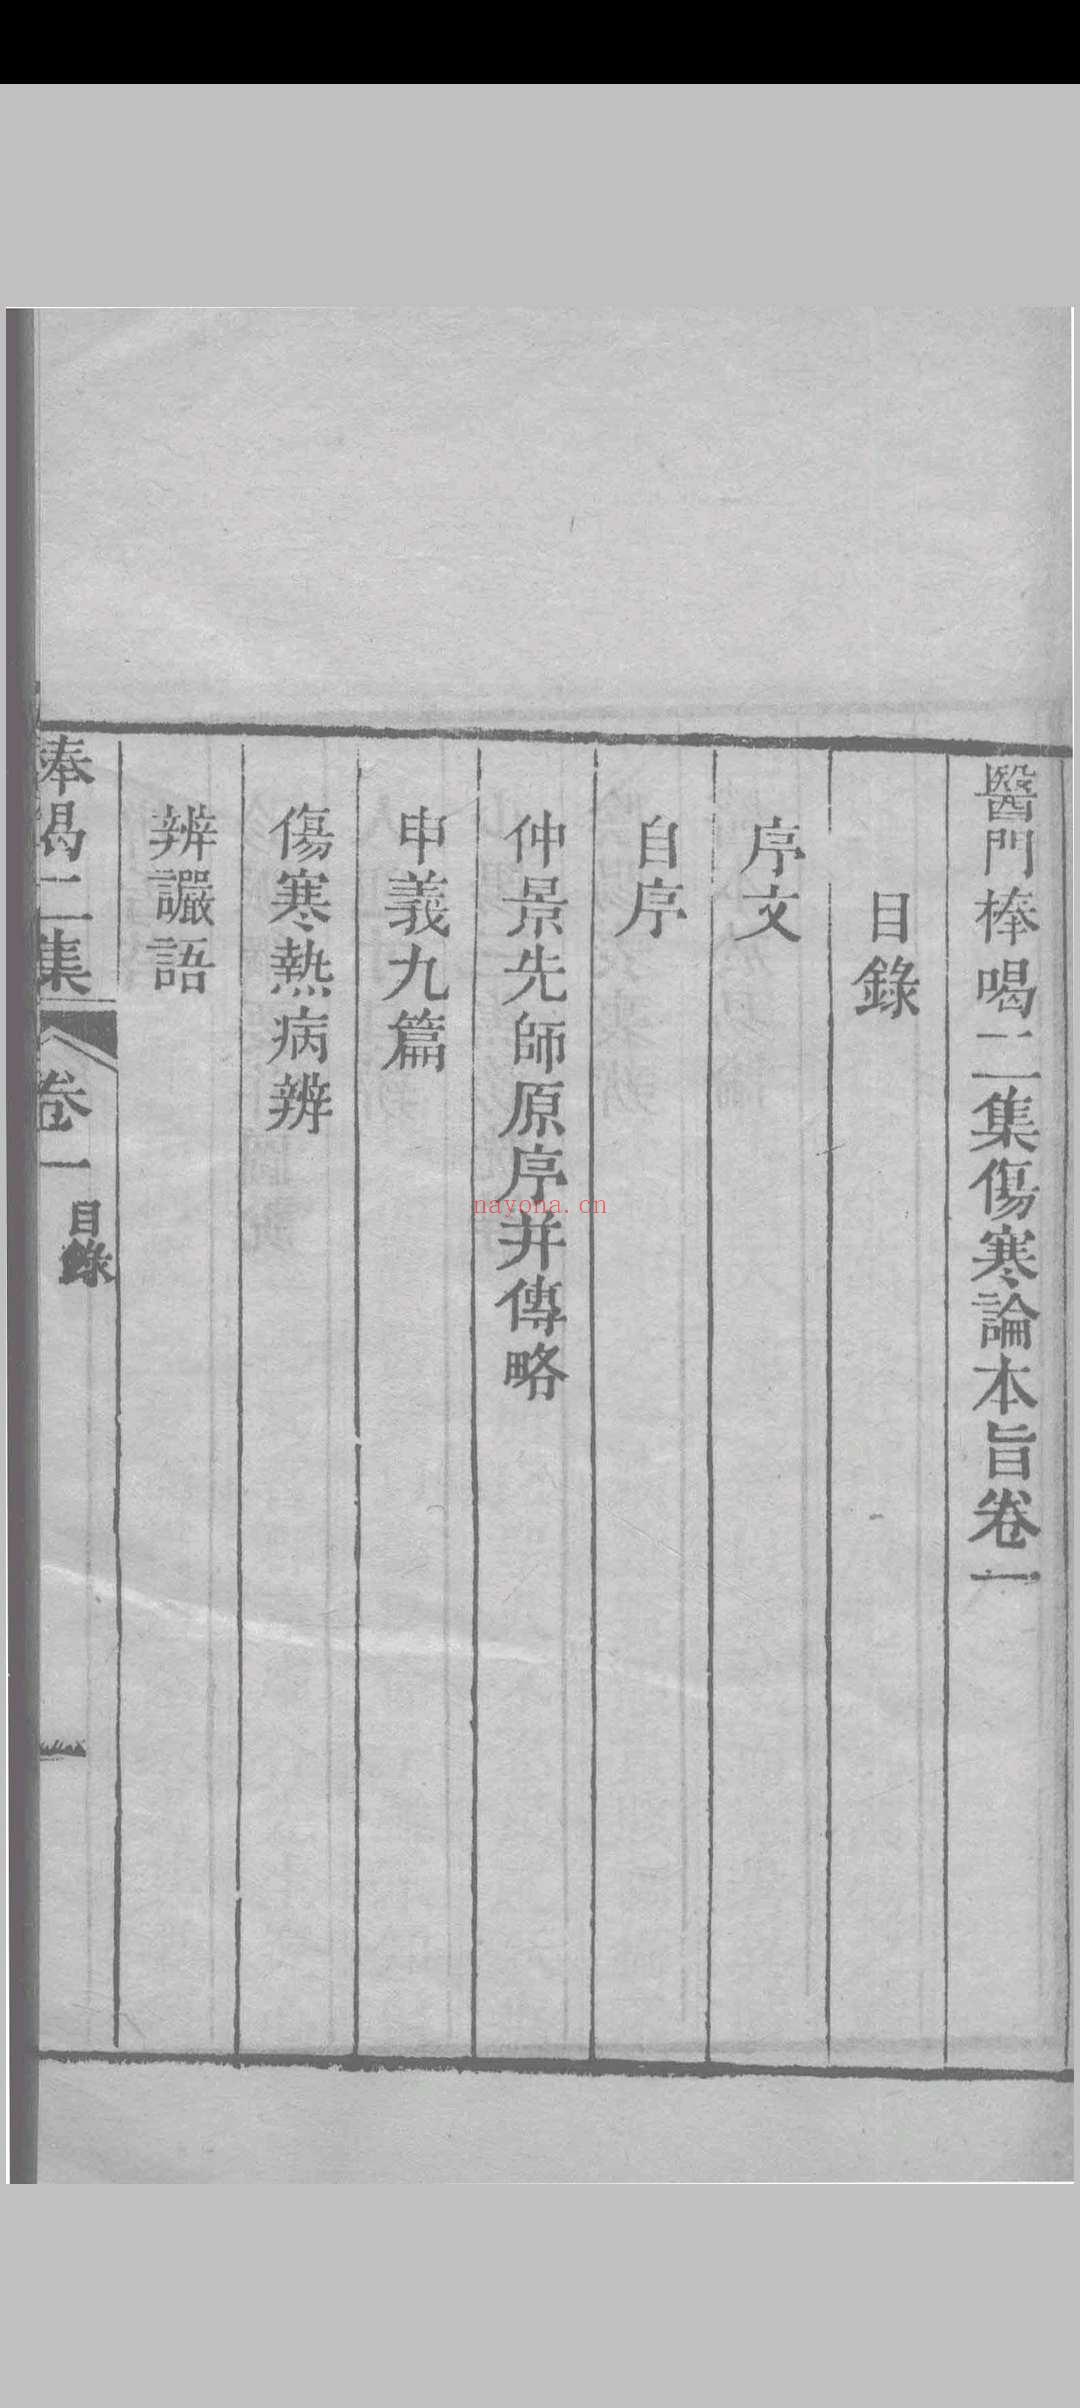 醫門棒喝二集傷寒論本旨卷一
目錄
序文
自序
仲景先師原序并傳略
申義九篇
傷寒熱病辨
辨讝語
棒喝二集
卷一
目錄
一
nayona.cn